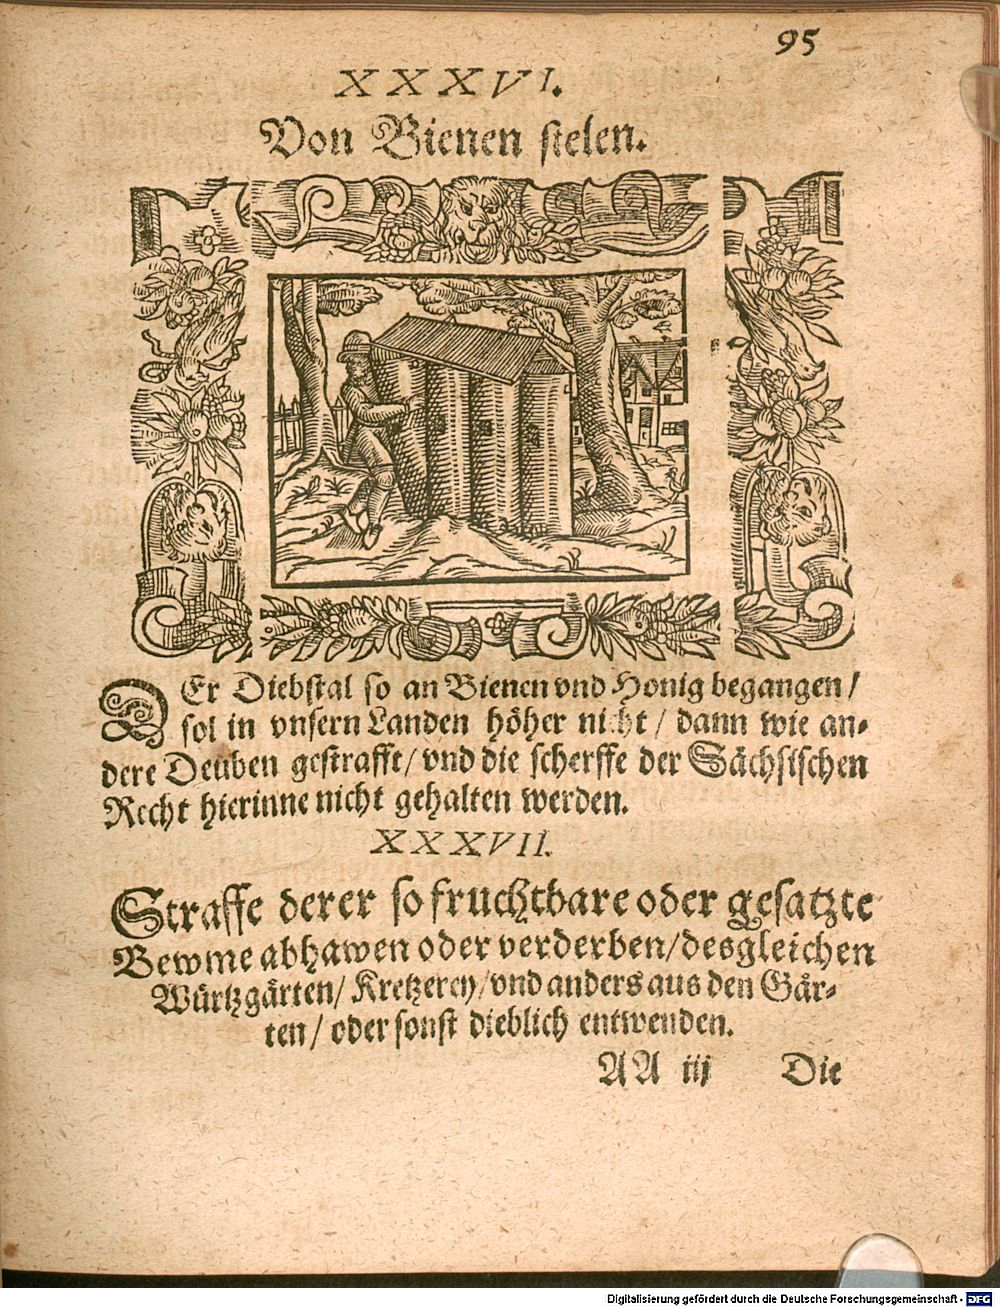 95
XXXVI.
Von Bienen stelen.
DEr Diebstal so an Bienen vnd Honig begangen/
sol in vnsern Landen höher nicht / dann wie an-
dere Deuben gestrafft/ vnd die scherffe der Sächsischen
Recht hierinne nicht gehalten werden.
XXXVII.
Straffe derer so fruchtbare oder gesatzte
Bewme abhawen oder verderben/desgleichen
Würtzgärten/ Kretzerey/vnd anders aus den Gär-
ten/ oder sonst dieblich entwenden.
AA iij Die
Digitalisierung gefördert durch die Deutsche Forschungsgemeinschaft - DFG